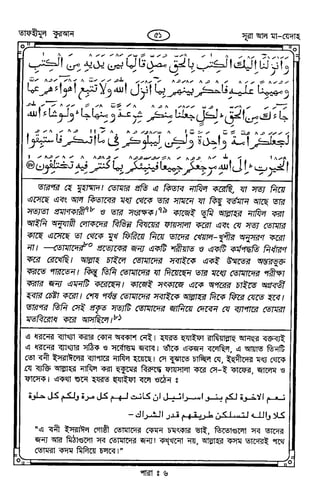 তাফহীমুল কুরআন
৫১
সূরা আল মা-য়েদাহ
وَاَنْزَلْنَآ اِلَيْكَ الْكِتٰبَ بِالْحَقِّ مُصَدِّقًا لِّمَا بَيْنَ يَدَيْهِ مِنَ الْكِتٰبِ
وَمُهَيْمِنًا عَلَيْهِ فَاحْكُمْ بَيْنَهُمْ بِمَآ اَنْزَلَ اللهُ وَلَا تَتَّبِعْ اَهْوَآءَهُمْ عَمَّا
جَآءَكَ مِنَ الْحَقِّ ؕ لِكُلٍّ جَعَلْنَا مِنْكُمْ شِرْعَةً وَّمِنْهَاجًا ؕ وَلَوْ شَآءَ اللهُ
لَجَعَلَكُمْ اُمَّةً وَّاحِدَةً وَّلٰكِنْ لِّيَبْلُوَكُمْ فِيْ مَآ اٰتٰىكُمْ فَاسْتَبِقُوا
الْخَيْرٰتِ ؕ اِلَى اللهِ مَرْجِعُكُمْ جَمِيْعًا فَيُنَبِّئُكُمْ بِمَا كُنْتُمْ فِيْهِ تَخْتَلِفُوْنَ
তারপর হে মুহাম্মাদ! তোমার প্রতি এ কিতাব নাযিল করেছি, যা সত্য নিয়ে
এসেছে এবং আল কিতাবের মধ্য থেকে তার সামনে যা কিছু বর্তমান আছে তার
সত্যতা প্রমাণকারী৭৮ ও তার সংরক্ষক।৭৯ কাজেই তুমি আল্লাহর নাযিল করা
আইনি অনুযায়ী লোকদের বিভিন্ন বিষয়ের ফায়সালা করো এবং যে সত্য তোমার
কাছে এসেছে তা থেকে মুখ ফিরিয়ে নিয়ে তাদের খেয়াল-খুশীর অনুসরণ করো
না। —তোমাদের৮০ প্রত্যেকের জন্য একটি শরীয়াত ও একটি কর্মপদ্ধতি নির্ধারণ
করে রেখেছি। আল্লাহ চাইলে তোমাদের সবাইকে একই উম্মতের অন্তরভুক্ত
করতে পারতেন। কিন্তু তিনি তোমাদের যা দিয়েছেন তার মধ্যে তোমাদের পরীক্ষা
করার জন্য এমনটি করেছেন। কাজেই সৎকাজে একে অপরের চাইতে অগ্রবর্তী
হবার চেষ্টা করো। শেষ পর্যন্ত তোমাদের সবাইকে আল্লাহর দিকে ফিরে যেতে হবে।
তারপর তিনি সেই প্রকৃত সত্যটি তোমাদের জানিয়ে দেবেন যে ব্যাপারে তোমরা
মতবিরোধ করে আসছিলে।৮১
এ ধরনের ব্যাখ্যা করার কোন অবকাশ নেই। হযরত হুযাইফা রাযিয়াল্লাহু আনহুর বক্তব্যই
এ ধরনের ব্যাখ্যার সঠিক ও সর্বোত্তম জবাব। তাঁকে একজন বলেছিল, এ আয়াত তিনটি
তো বনী ইসরাঈলের ব্যাপারে নাযিল হয়েছে। সে বুঝাতে চাচ্ছিল যে, ইহুদীদের মধ্য থেকে
যে ব্যক্তি আল্লাহর নাযিল করা হুকুমের বিরুদ্ধে ফায়সালা করে সে-ই কাফের, জালেম ও
ফাসেক। একথা শুনে হযরত হুযাইফা বলে ওঠেন :
نعم الاخوة لكم بنو اسرائيل ان كانت لهم كل مرة ولكم كل حلوة
كلا والله لتسلكن طريقهم قدر الشراك -
"এ বনী ইসরাঈল গোষ্ঠী তোমাদের কেমন চমৎকার ভাই, তিতোগুলো সব তাদের
জন্য আর মিঠাগুলো সব তোমাদের জন্য! কখ্খনো নয়, আল্লাহর কসম তাদেরই পথে
তোমরা কদম মিলিয়ে চলবে।"
পারা : ৬